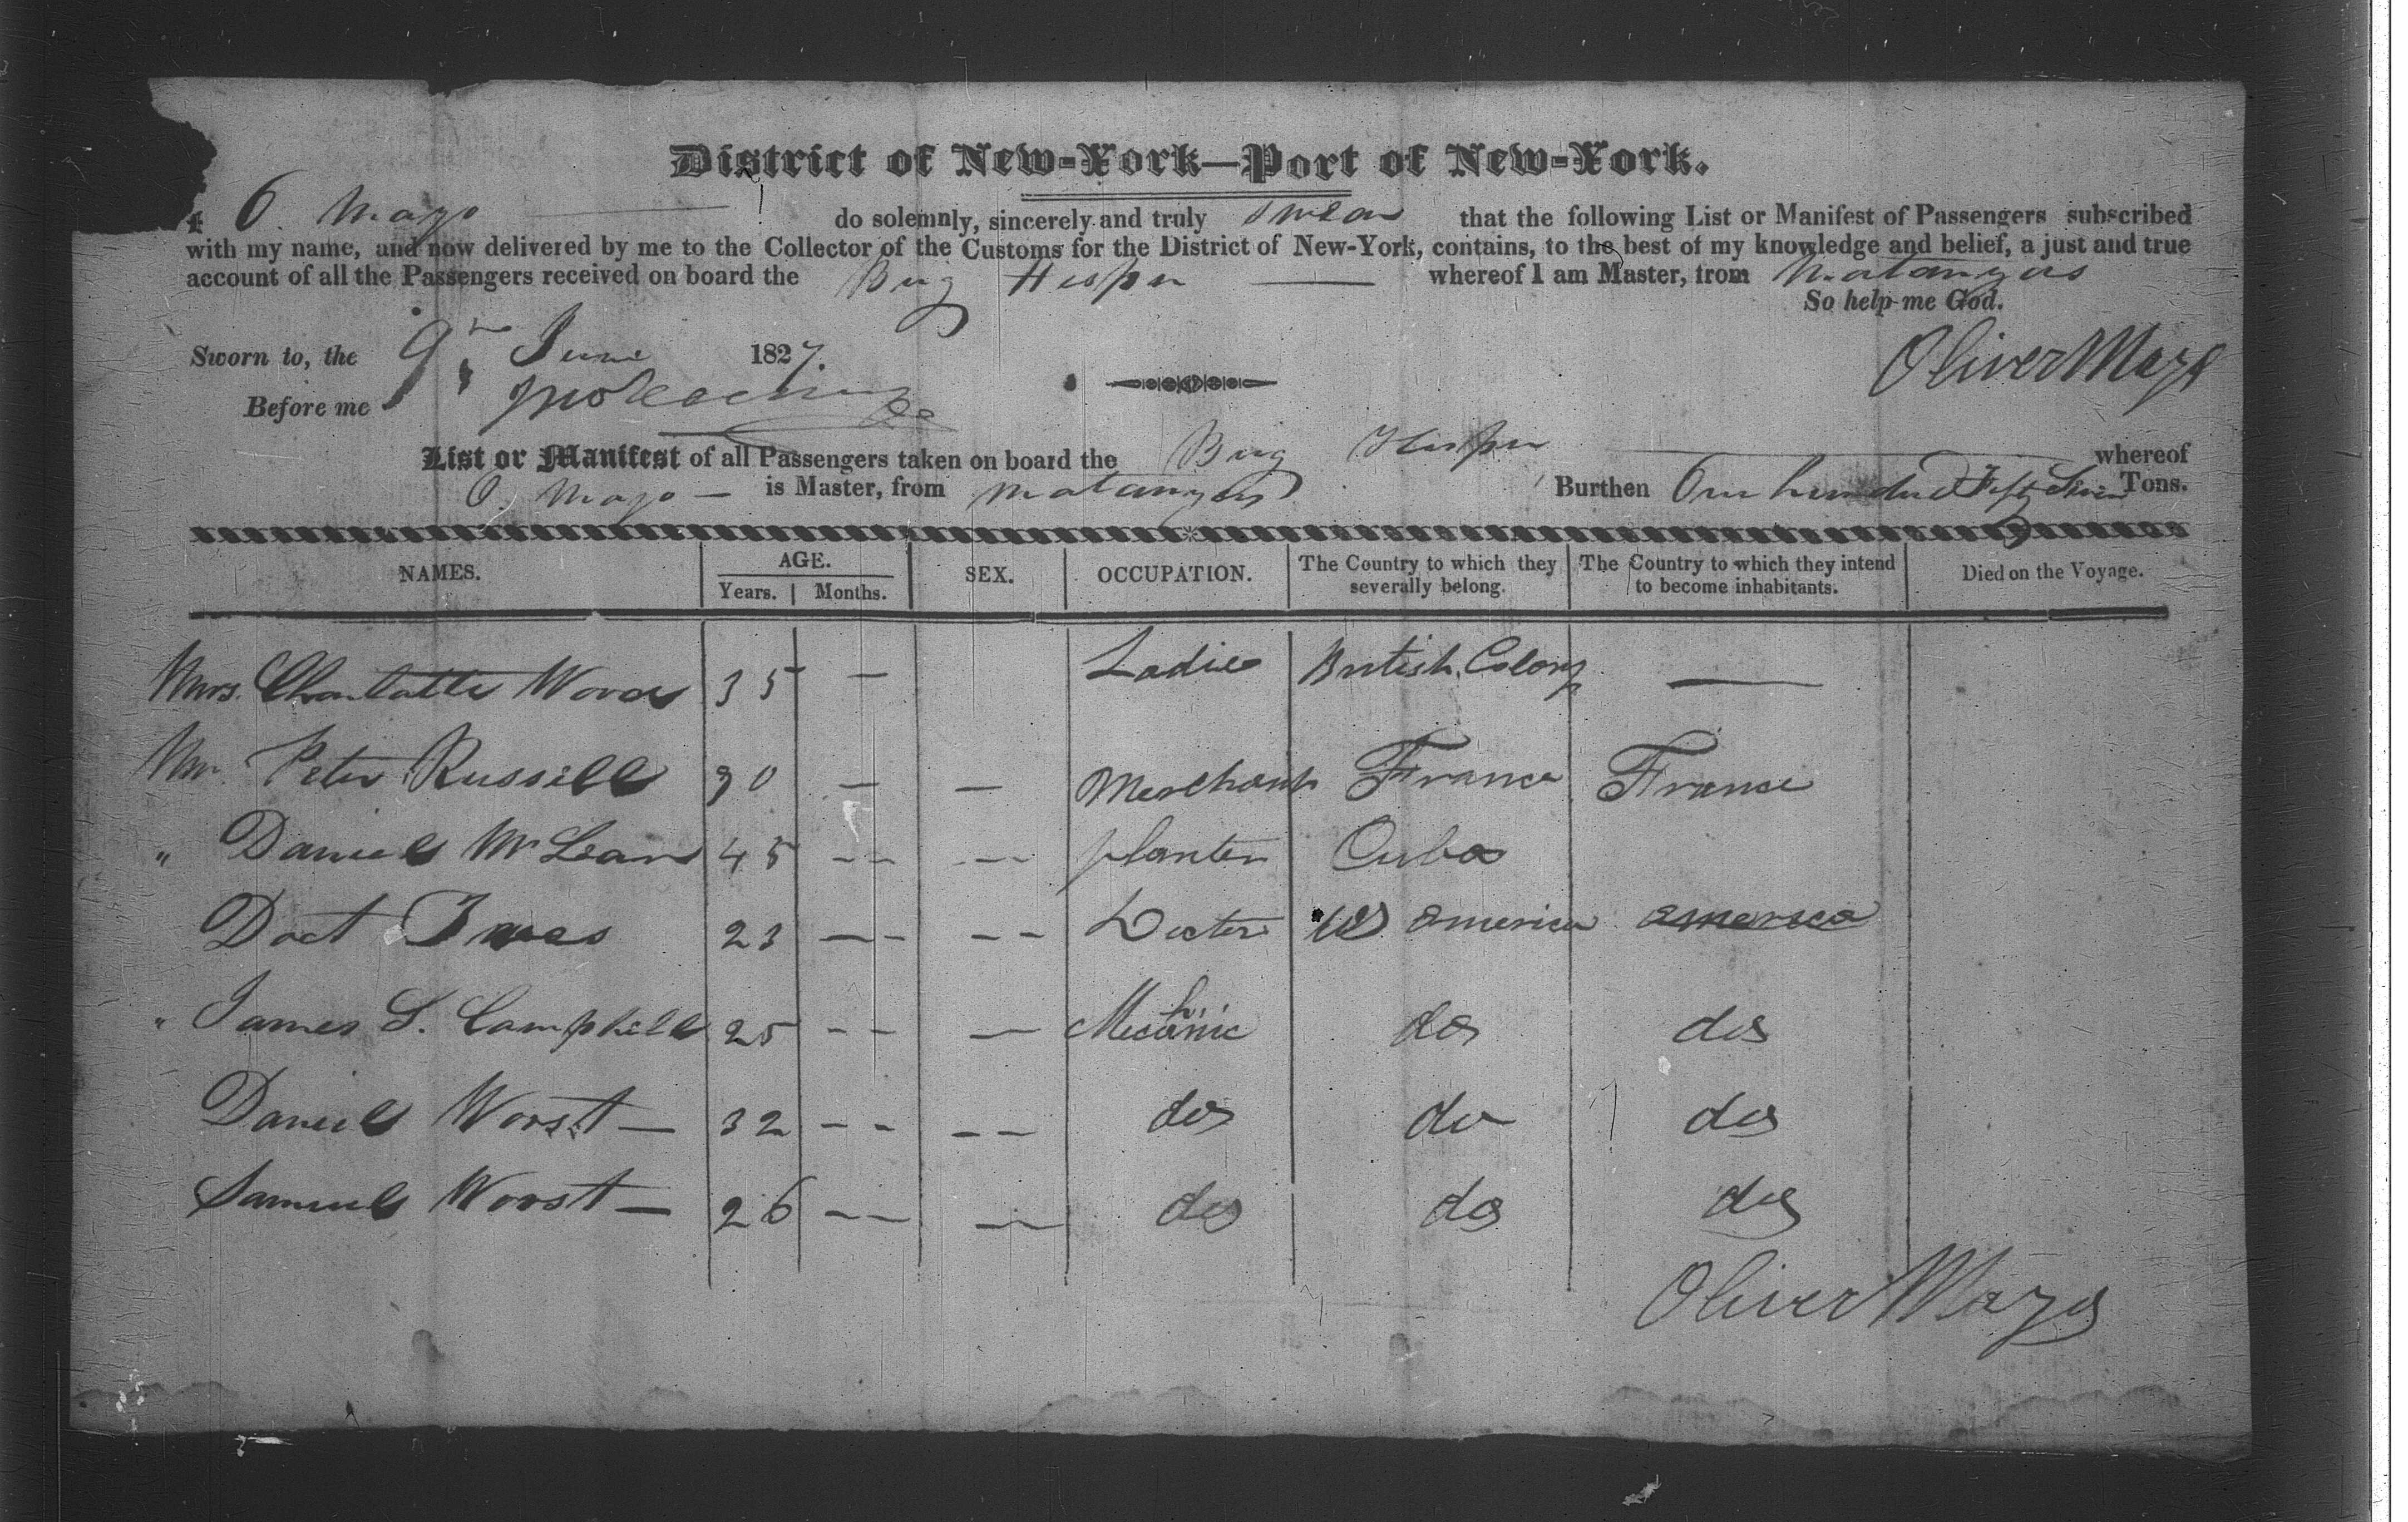 District of New-York—Port of New-York.
I O. Mayo do solemnly, sincerely and truly Swear that the following List or Manifest of Passengers subscribed
with my name, and now delivered by me to the Collector of the Customs for the District of New-York, contains, to the best of my knowledge and belief, a just and true
account of all the Passengers received on board the Brig Hesper whereof I am Master, from Matanzas
So help me God.
Sworn to, the 9th June 1827.
Oliver Mayo
Before me
List or Manifest of all Passengers taken on board the Brig Hesper whereof
O. Mayo — is Master, from Matanzas Burthen One hundred Fifty Seven Tons.
NAMES. AGE. Years. Months. SEX. OCCUPATION. The Country to which they severally belong. The Country to which they intend to become inhabitants. Died on the Voyage.
Mrs. Charlotte Woods 35 — Ladies British Colony —
Mr. Peter Russell 30 — — Merchant France France
" Daniel McLean 45 — — — — planter Cuba
Doct 23 — — — — Docter America america
" James L. Campbell 25 — — — Mechanic do do
Daniel Worst — 32 — — — — do do do
Samuel Worst — 26 — — — — do do do
Oliver Mayo